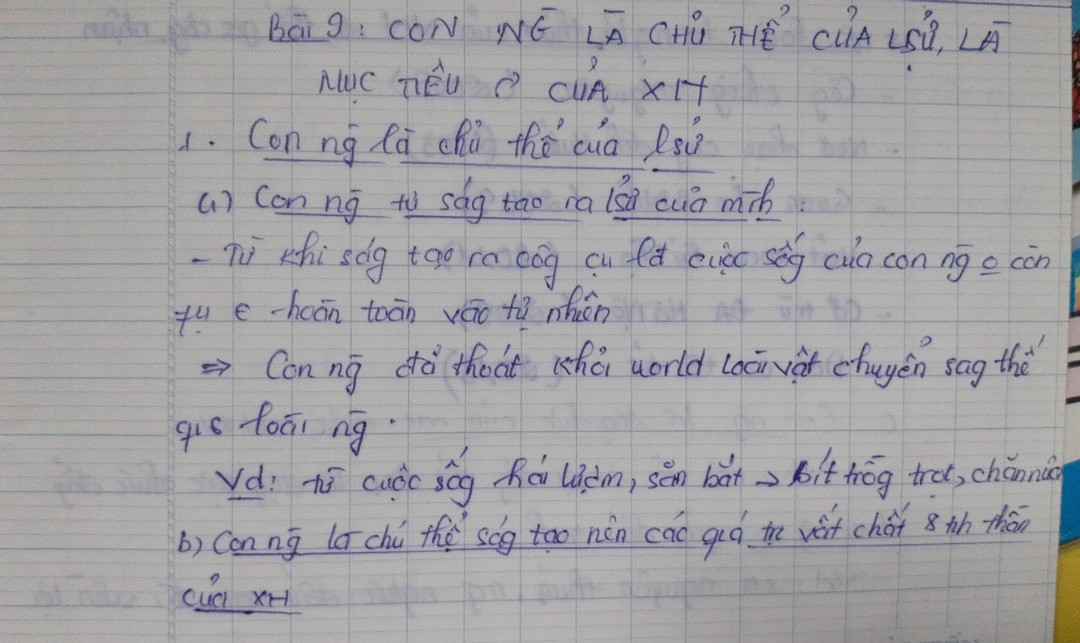 Bài 9: CON NG̃ LÀ CHỦ THỂ CỦA LSỬ, LÀ
MỤC TIÊU Ở CỦA XH
1. Con ng̃ là chủ thể của lsử
a) Con ng̃ tự ság tạo ra lsử của mìh.
- Từ khi ság tạo ra côg cụ lđ cuộc sốg của con ng̃ o còn
tụ ∈ hoàn toàn vào tự nhiên
⇒ Con ng̃ đã thoát khỏi world loài vật chuyển sag thế
giớ loài ng̃.
Vd: từ cuộc sốg hái lượm, săn bắt → bít trồg trọt, chăn nuôi
b) Con ng̃ là chủ thể ság tạo nên các giá trị vất chất & tih thần
của XH